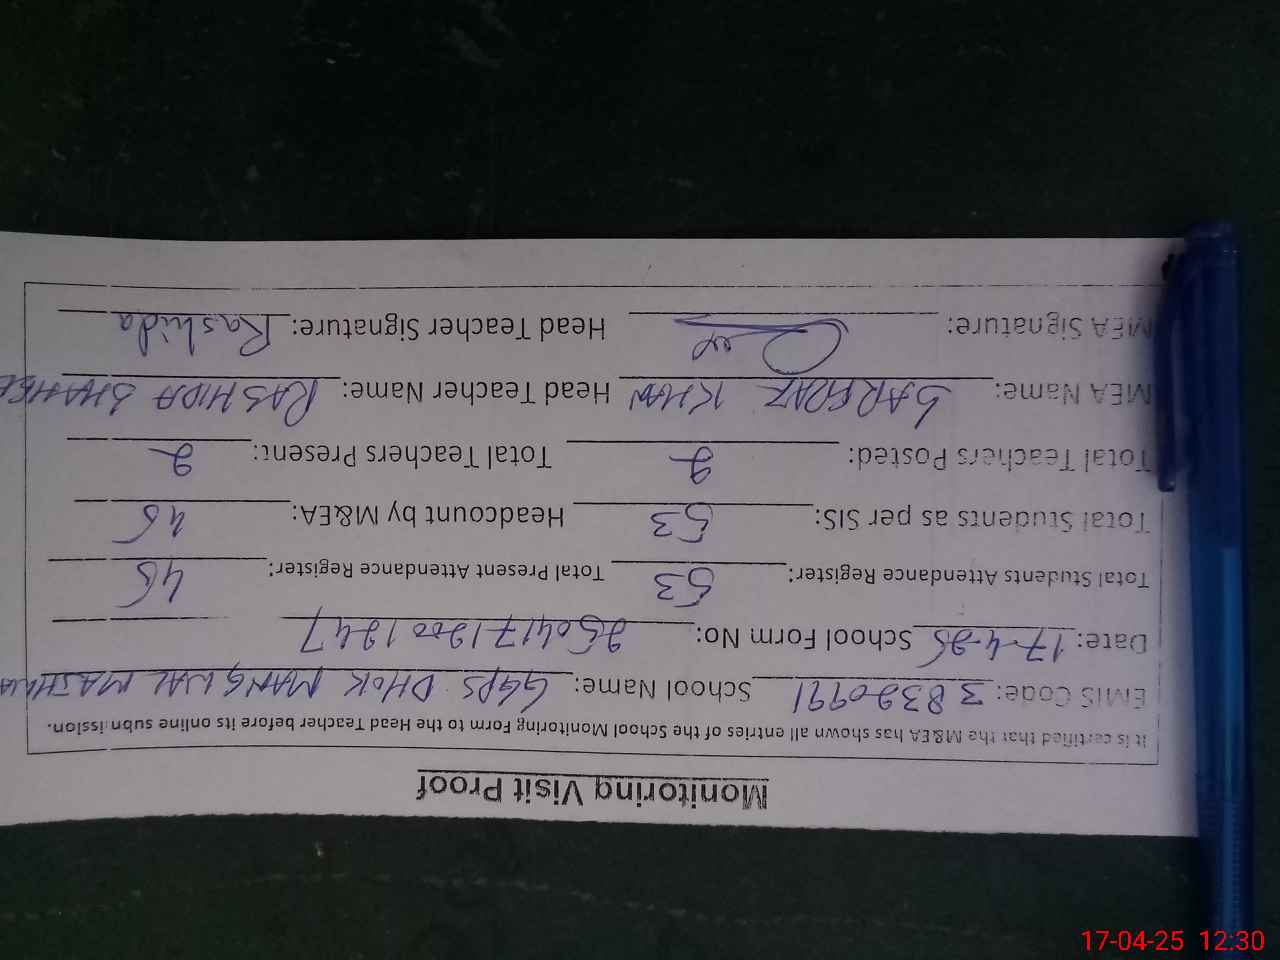 Monitoring Visit Proof
It is certified that the M&EA has shown all entries of the School Monitoring Form to the Head Teacher before its online submission.
EMIS Code: 38320991 School Name: GGPS DHOK MANGWAL
Date: 17-4-25 School Form No: 25041712001247
Total Students Attendance Register: 53 Total Present Attendance Register: 45
Total Students as per SIS: 53 Headcount by M&EA: 45
Total Teachers Posted: 2 Total Teachers Present: 2
MEA Name: SARFRAZ KHAN Head Teacher Name: RASHIDA
MEA Signature: Head Teacher Signature: Rashida
17-04-25 12:30